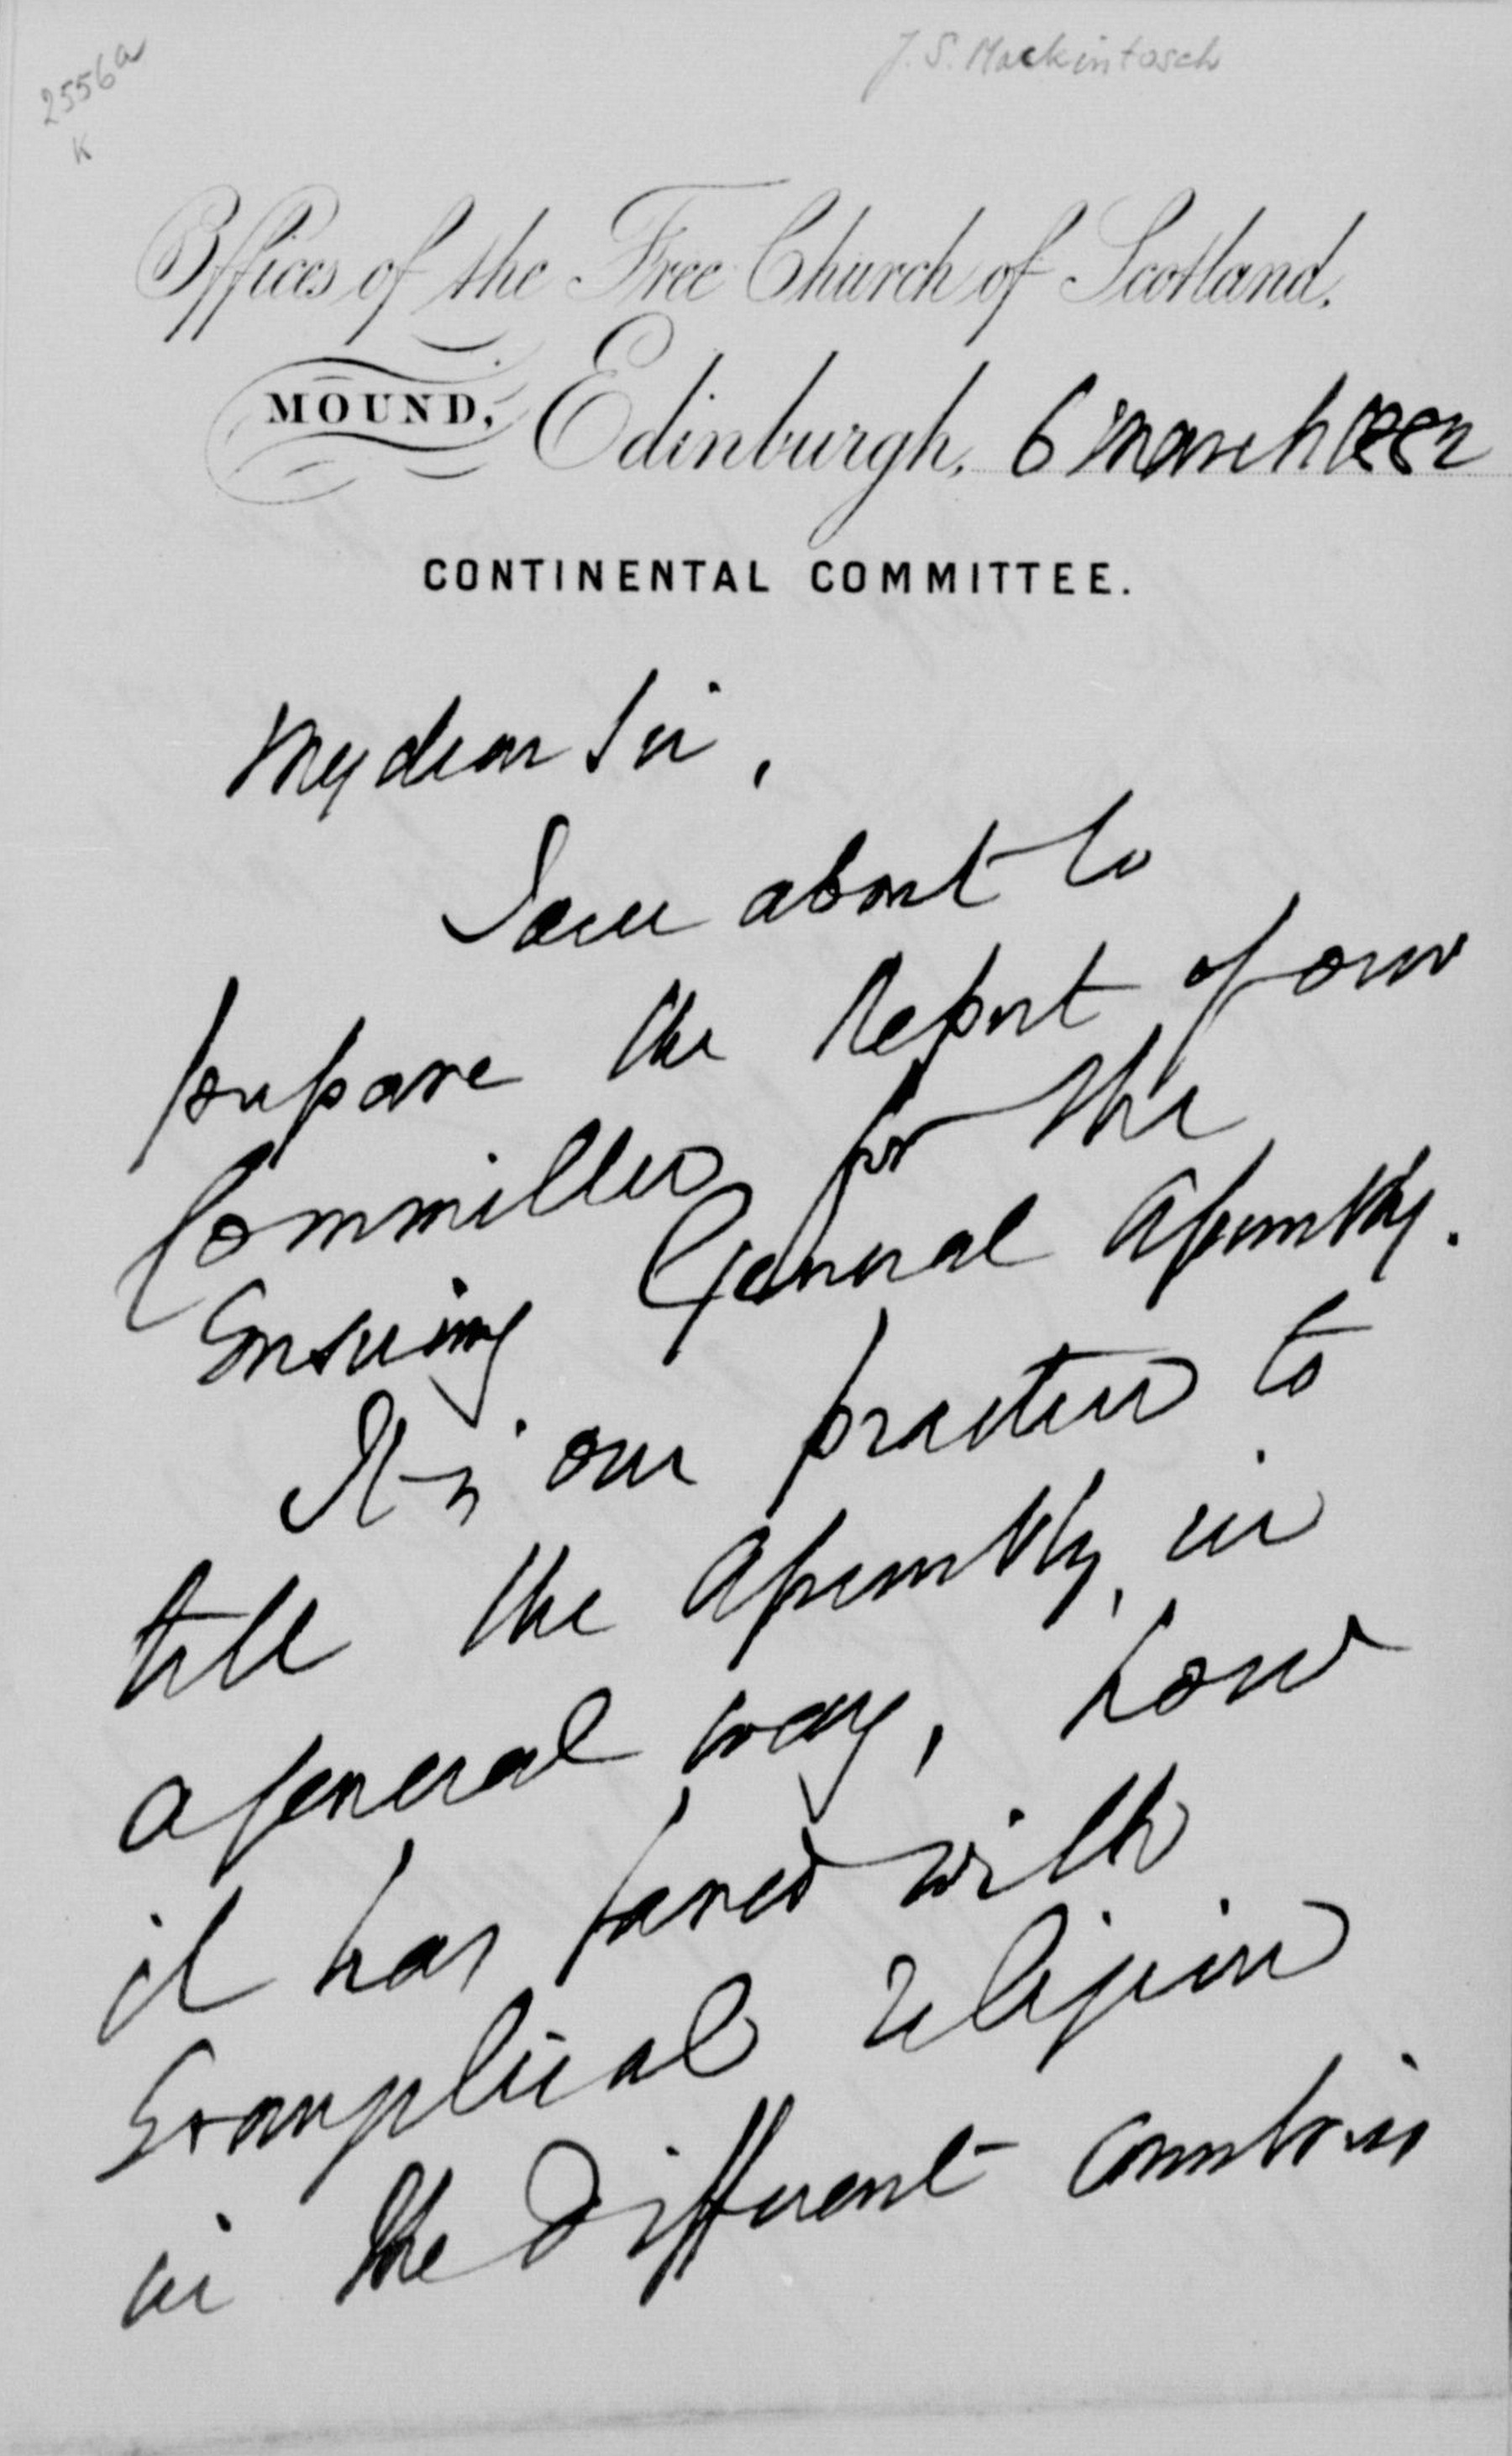 2556a
K
J. S. Mackintosch
Offices of the Free Church of Scotland.
MOUND, Edinburgh, 6 March 1882
CONTINENTAL COMMITTEE.
My dear Sir,
I am about to
prepare the Report of our
Committee for the
Ensuing General Assembly.
It is our practice to
tell the Assembly, in
a general way, how
it has fared with
Evangelical religion
in the different countries